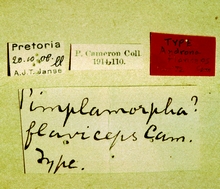 Pretoria
A.J.T. Janse
P. Cameron Coll.
1914-110.
TYPE
Pimplamorpha?
flaviceps Cam.
Type.